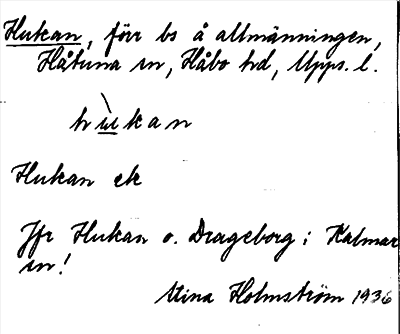 Hukan, förr bs å allmänningen,
Håtuna sn, Håbo hd, Upps. l.
hùkan
Hukan ek
Jfr Hukan o. Drageborg i Kalmar
sn!
Stina Holmström 1936